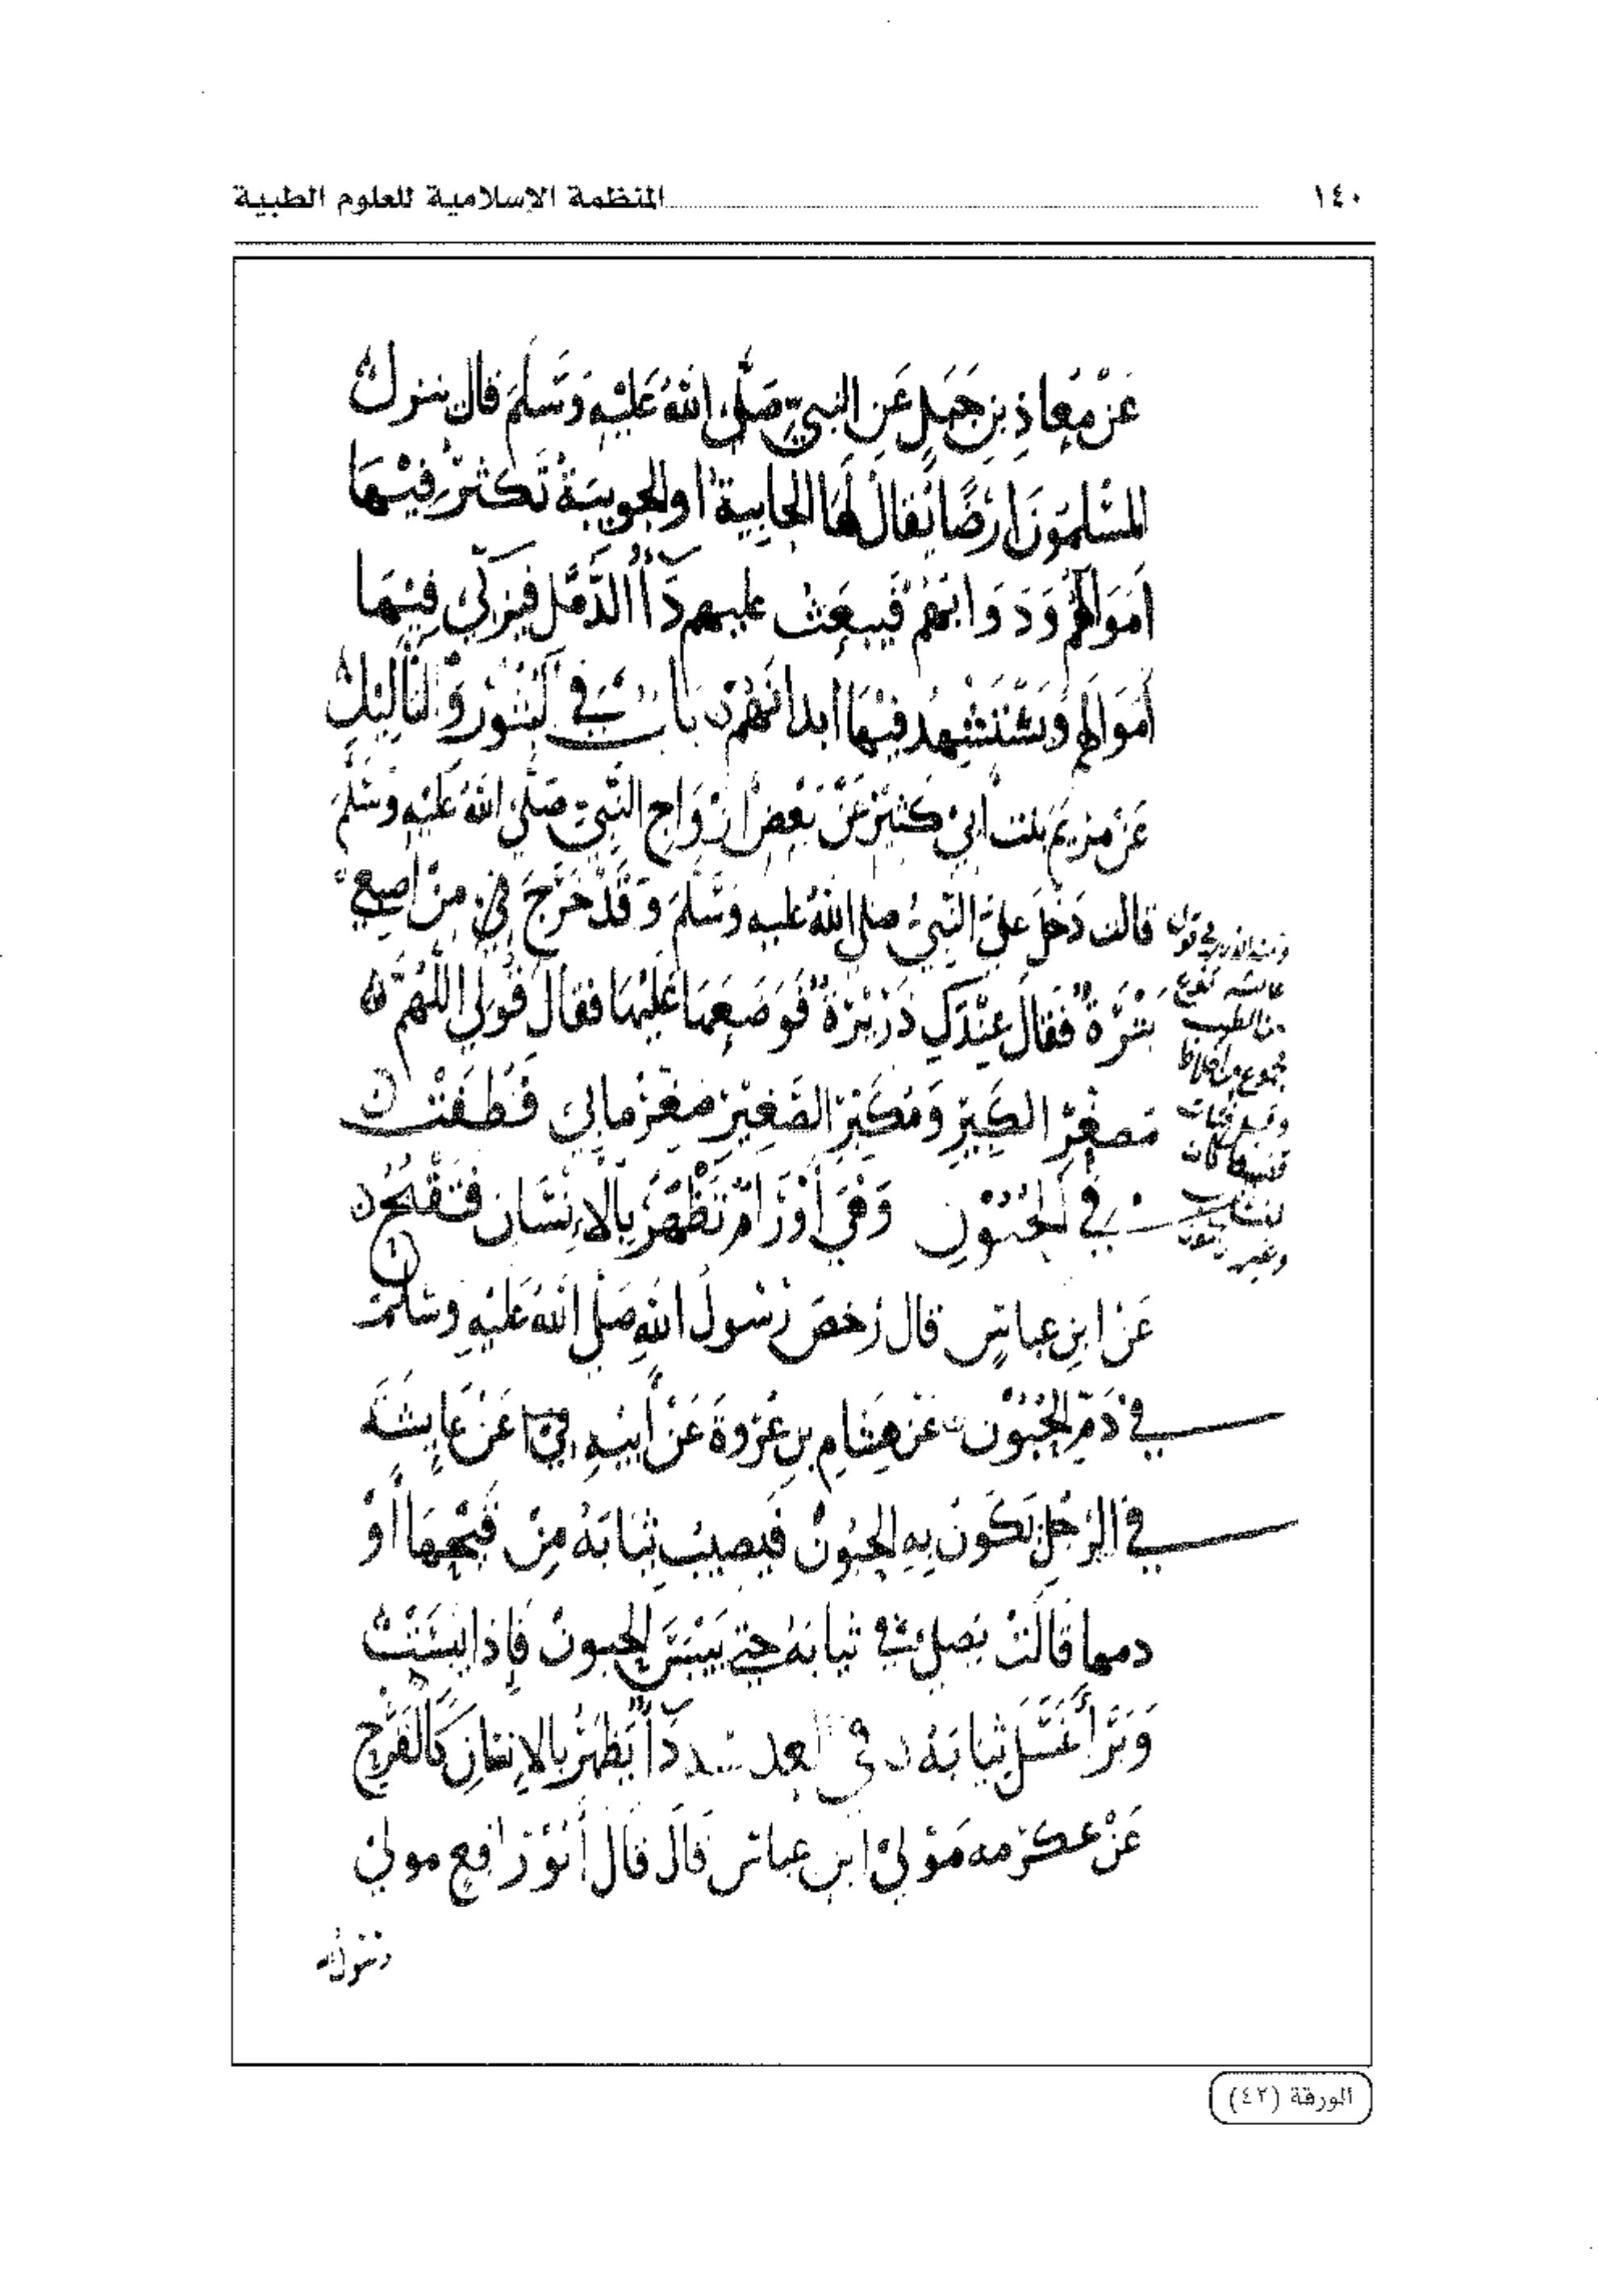 ١٤٠ المنظمة الإسلامية للعلوم الطبية
عَنْ مُعاذِ بنِ جَبَلٍ عَنِ النبيِّ صَلَّى اللهُ عَلَيْهِ وَسَّلَمَ قال ينزل
المسْلمونَ ارْضًا يُقالُ لها الجابية او الجويبية تَكثرُ فيْها
أمَوالهُمْ وَدَوَابهُمْ فَيبعَثُ عليهم دَآءُ الدُّمَّل فيزكّي فِيْها
أَموالهم وَيَسْتَشْهِدُ فيْها ابدانهُمْ باب في البُثُوْر وَالثَّآلِيْل
عَنْ مَرْيَم بنت أبي كَثيْر عَنْ بَعْضِ أَزْوَاجِ النَّبِيّ صَلَّى اللهُ عَلَيْهِ وَسَّلَمَ
قالت دَخلَ عليَّ النَّبيُّ صلى اللهُ عليه وَسَّلَمَ وَقَدْ خَرَجَ في مِنْ اصبعي
بَثْرَةٌ فَقالَ عِنْدَكِ ذَرْيرَةٌ فَوَضَعَها عَليْها فقالَ قُولي اللهُمَّ
مصغِّرَ الكَبيْرِ وَمُكَبِّرَ الصَّغِيْر صَغّرْ مابي فَطَفَتْ
في الحُبُوْنِ وَهيَ أَوْرَامٌ تَظْهَرُ بالأِنْسَان فَتَقْيحُ
عَنْ ابنِ عباسٍ قال رَخصَ رَسُولُ اللهِ صَلَّى اللهُ عَليْهِ وسَلَّمَ
في دَمِ الحُبُوْن عَنْ هِشامِ بنِ عُرْوةَ عَنْ أبيْهِ عَنْ عَايِشَةَ
في الرَّجُلِ تَكُونُ بِهِ الحبُوْنُ فَيصيبُ ثِيَابَهُ مِنْ قَيْحِهَا أَوْ
دمها قَالَتْ يُصلي في ثيابهُ حتى تَيْبَسَ الحبونُ فَاِذا يَبسَتْ
وَبَرَأَ غَسَلَ ثيَابَهُ في دَآءٌ يَظهَرُ بالاِنسانِ كَالْقَرْحِ
عَنْ عكرْمه مَوْلى ابن عباس قَالَ قَال أبُوْ رَافع مولى
رسول الله
الورقة (٤٢)